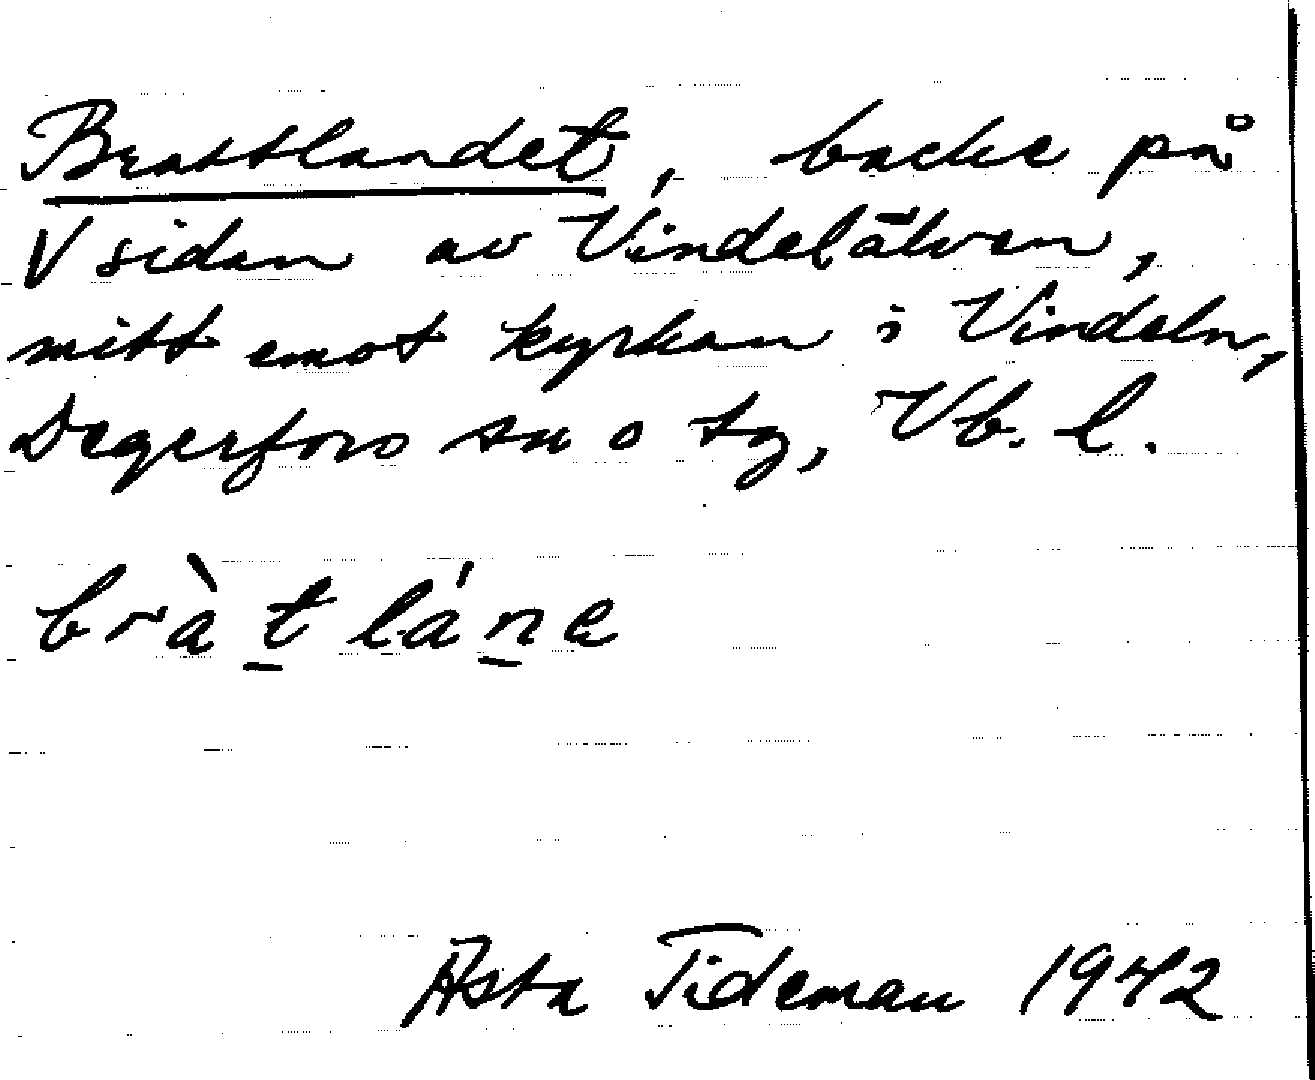 Brattlandet, backe på
V sidan av Vindelälven,
mitt emot kyrkan i Vindeln,
Degerfors sn o tg, Vb. l.
bràt̲láṉe
Ästa Tideman 1942